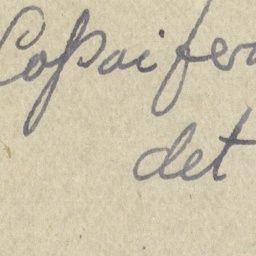 Copaifera
det